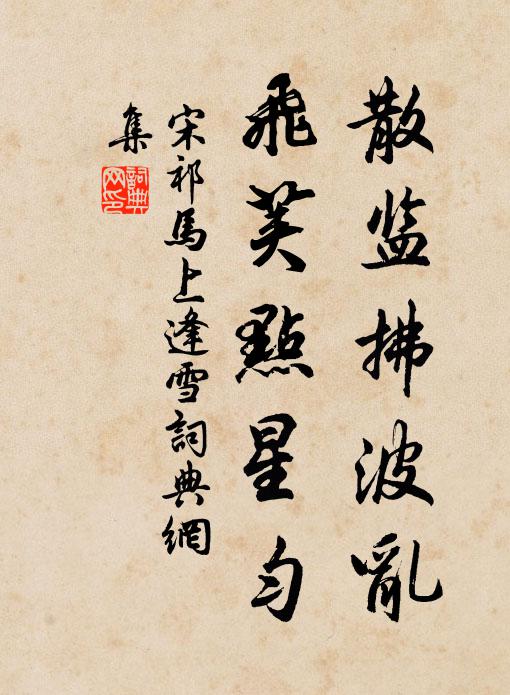 散监拂波亂
飛芙點星匀
宋祁馬上逢雪詞典網
集
詞典
网印